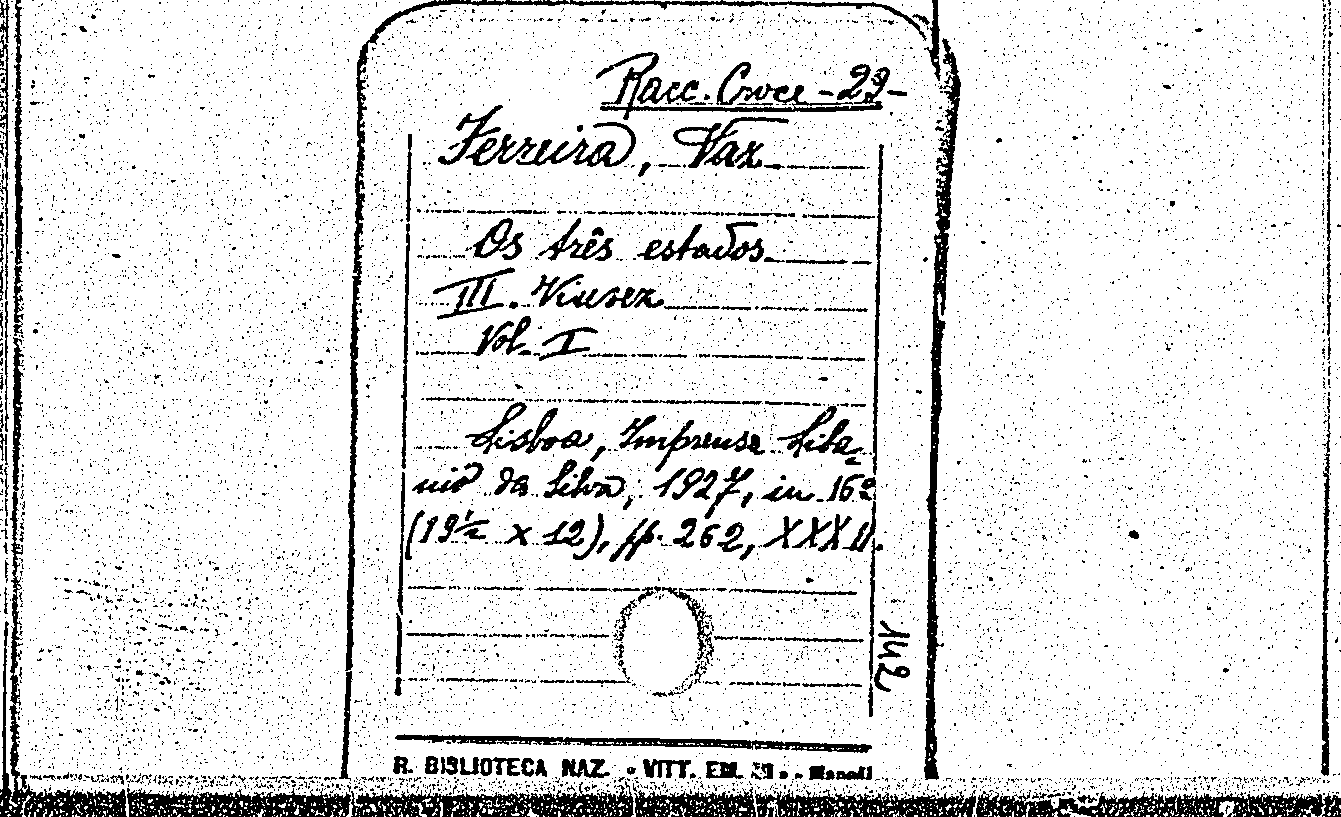 Racc. Croce - 29 -
Ferreira, Vaz
Os três estados
III. Viuvez
Vol. I
Lisboa, Imprensa Liba-
nio da Silva, 1927, in 16º
(19½ x 12), pp. 262, XXXII.
142
R. BIBLIOTECA NAZ. - VITT. EM. III. - Napoli